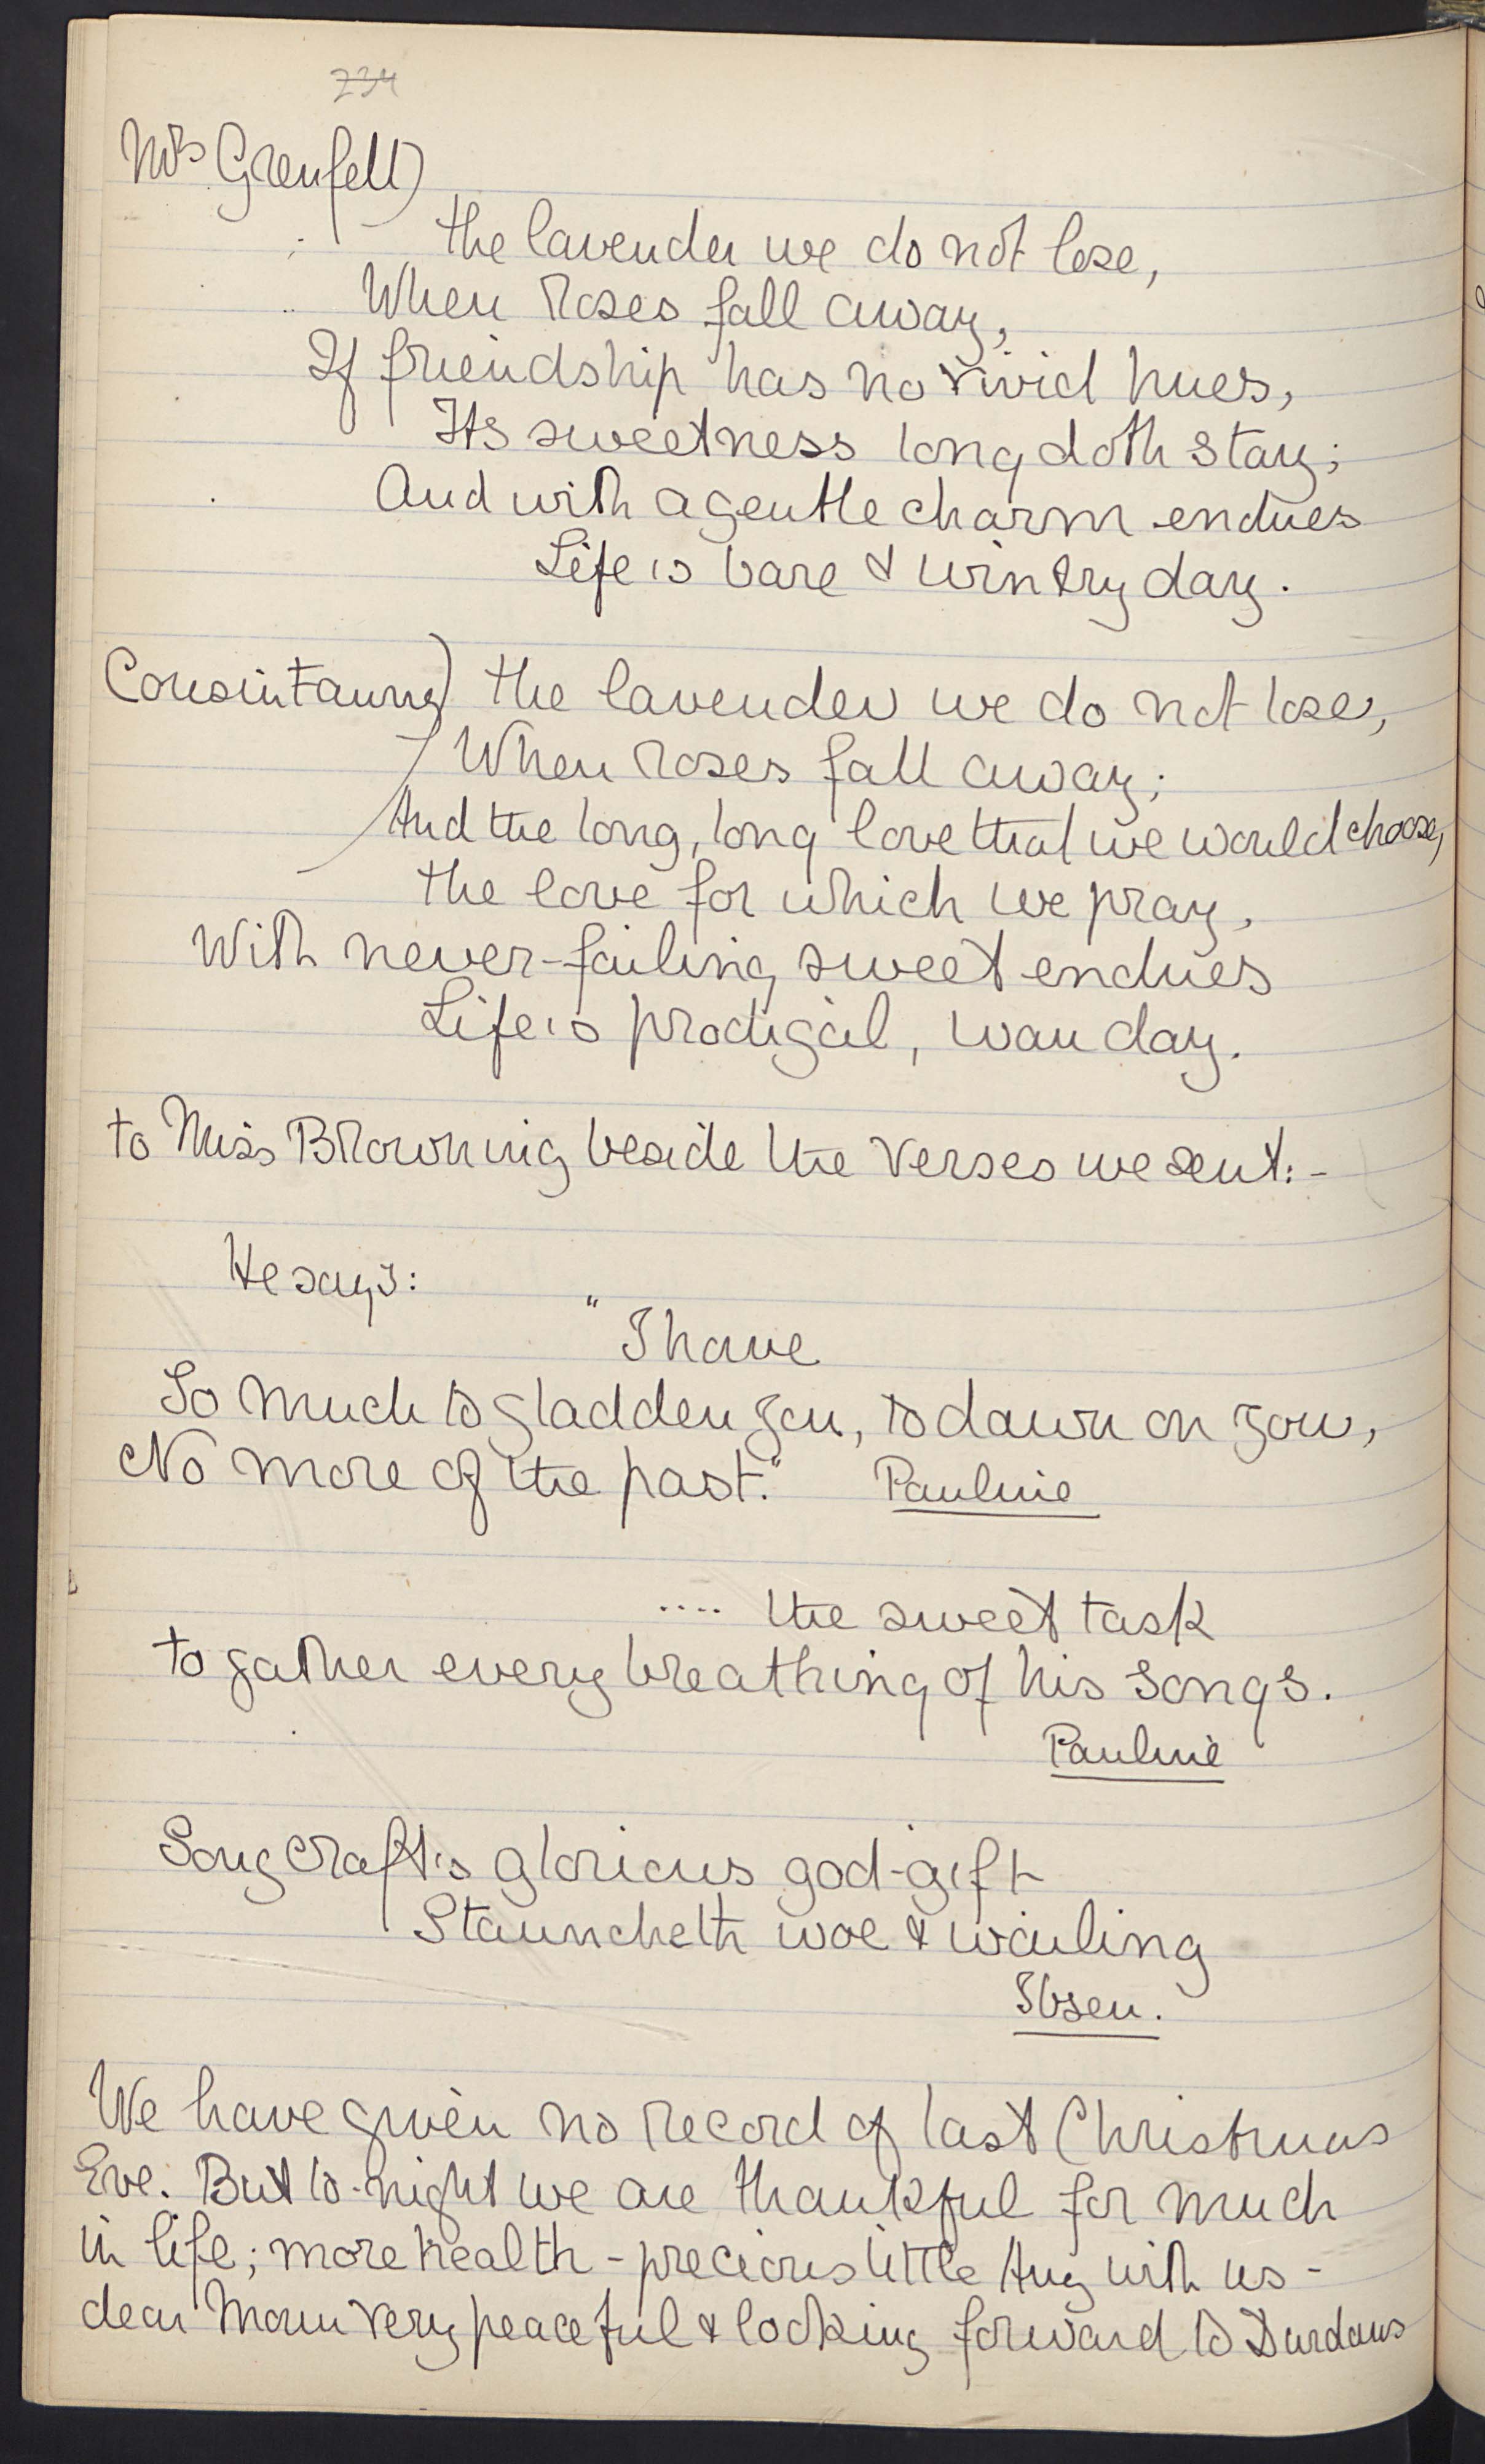 234
Mrs Grenfell)
the lavender we do not lose,
When roses fall away,
If friendship has no vivid hues,
Its sweetness long doth stay;
And with a gentle charm endues
Life's bare & wintry day.
Cousin Fanny) the lavender we do not lose,
When roses fall away;
And the long, long love that we would choose,
the love for which we pray,
With never-failing sweet endues
Life's prodigal, wan day.
to Miss Browning beside the verses we sent:-
He says:
"I have
So much to gladden you, to dawn on you,
No more of the past." Pauline
.... the sweet task
to gather every breathing of his songs.
Pauline
Song craft's glorious god-gift
Stauncheth woe & wailing
Ibsen.
We have given no record of last Christmas
Eve. But to-night we are thankful for much
in life; more health - precious little Amy with us -
dear Mam very peaceful & looking forward to Durdans